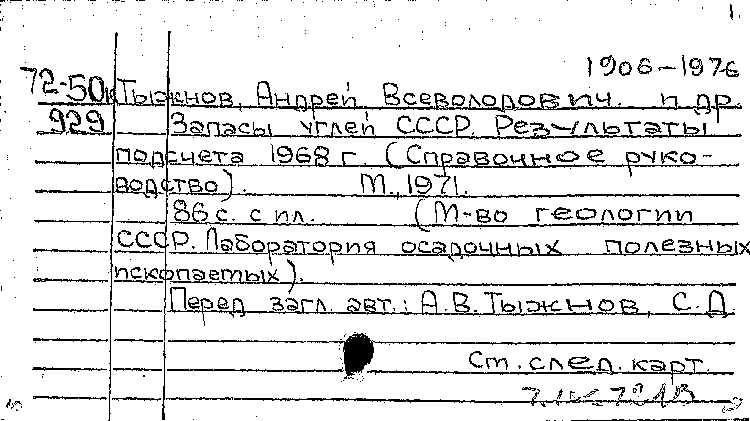 1.
1906-1976
72-50к Тыжнов, Андрей Всеволодович. и др.
929 Запасы углей СССР. Результаты
подсчета 1968 г. (Справочное руко-
водство). М., 1971.
86 с. с ил. (М-во геологии
СССР. Лаборатория осадочных полезных
ископаемых).
Перед загл. авт.: А.В. Тыжнов, С.Д.
См. след. карт.